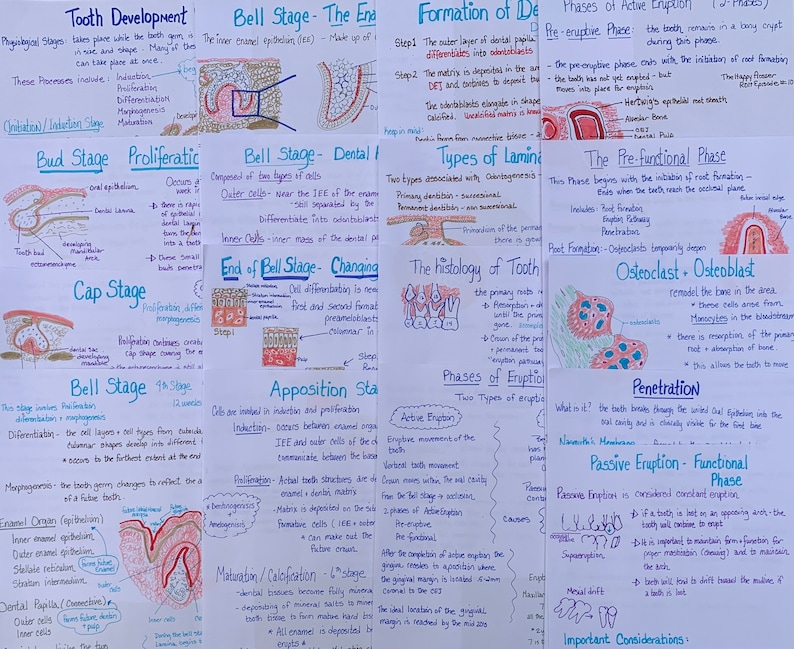 Tooth Development
Physiological Stages: takes place while the tooth germ is
in size and shape - Many of thes
can take place at once.
These Processes include: Induction
Proliferation
Differentiation
Morphogenesis
Maturation
(Initiation/Induction Stage
Bell Stage - The Ena
The inner enamel epithelium (IEE) - Made up of
Formation of De
Step 1 The outer layer of dental papilla
differentiates into odontoblasts
Step 2 The matrix is deposited in the are
DEJ and continues to deposit tow
The odontoblasts elongate in shape
Calcified. Uncalcified matrix is know
Keep in mind:
Phases of Active Eruption (2-Phases)
Pre-eruptive Phase: the tooth remains in a bony crypt
during this phase.
- the pre-eruptive phase ends with the initiation of root formation
- the tooth has not yet erupted - but
moves into place for eruption.
The Happy Flosser
Root Episode #: 10
Hertwig's epithelial root sheath
Alveolar Bone
CEJ
Dental Pulp
Bud Stage Proliferatic
oral epithelium
Dental Lamina
Tooth bud
ectomesenchyme
developing
mandibular
Arch
Occurs a
week
there is rapi
of epithelial
dental lamin
turns the
into a tooth
these small
buds penetra
Bell Stage - Dental
Composed of two types of cells
Outer cells - Near the IEE of the enam
- still separated by the
Differentiate into odontoblasts
Inner Cells - inner mass of the dental p
Types of Lamina
Two types associated with Odontogenesis -
Primary dentition - succesional
Permanent dentition - non succesional
Primordium of the permane
there is grow
The Pre-functional Phase
This Phase begins with the initiation of root formation -
Ends when the teeth reach the occlusal plane.
Includes: Root formation
Eruption Pathway
Penetration
future incisal edge
Alveolar
Bone
Root Formation: - Osteoclasts temporarily deepen
Cap Stage
Proliferation, differ
morphogenesis
dental sac
developing
mandible
Proliferation continues creat
Cap shape covering the e
End of Bell Stage - Changing
Cell differentiation is nee
first and second format
preameloblas
columnar in
stellate reticulum
Stratum intermedium
inner enamel
epithelium
dental papilla
Step 1
Step
The histology of Tooth
the primary roots r
Resorption + di
until the prima
gone.
Crown of the prim
+ permanent too
"eruption pathway
Osteoclast + Osteoblast
osteoclasts
remodel the bone in the area.
* these cells arise from
Monocytes in the bloodstream
* there is resorption of the primary
root + absorption of bone.
* this allows the tooth to move
Bell Stage 4th Stage
This stage involves Proliferation
differentiation + morphogenesis
12 weeks
Differentiation - the cell layers + cell types from cuboida
Columnar shapes develop into different t
* occurs to the furthest extent at the end
Morphogenesis - the tooth germ changes to reflect the a
of a future tooth.
Enamel Organ (epithelium)
Inner enamel epithelium
Outer enamel epithelium
Stellate reticulum
Stratum intermedium
forms future
Enamel
Dental Papilla (Connective)
Outer cells
Inner cells
forms future dentin
+ pulp
Outer
cells
Inner cells
During the bell st
Lamina begins t
Apposition Sta
Cells are involved in induction and proliferation
Induction - occurs between enamel orga
IEE and outer cells of the d
communicate between the base
Proliferation - Actual tooth structures are de
enamel + dentin matrix
* Dentinogenesis
+
Amelogenesis
- Matrix is deposited on the sit
formative cells (IEE + outer
* can make out the
future crown.
Maturation/Calcification - 6th Stage
- dental tissues become fully minera
- depositing of mineral salts to miner
tooth tissue to form mature hard tiss
* All enamel is deposited b
erupts *
Phases of Eruption
Two Types of eruptic
Active Eruption
Eruptive movement of the
tooth
Vertical tooth movement
Crown moves within the oral cavity
From the Bell Stage → occlusion.
2 phases of Active Eruption
Pre-eruptive
Pre-functional
Causes
After the completion of active eruption the
gingival recedes to a position where
the gingival margin is located .5-2mm
Coronal to the CEJ
The ideal location of the gingival
margin is reached by the mid 20's
Penetration
What is it? the tooth breaks through the united Oral Epithelium into the
oral cavity and is clinically visible for the first time
Nasmyth's Membrane
Passive Eruption - Functional
Phase
Passive Eruption is considered constant eruption.
occlusal
plane
Supraeruption
Mesial drift
if a tooth is lost on an opposing arch - the
tooth will continue to erupt
It is important to maintain form + function for
proper mastication (chewing) and to maintain
the arch.
teeth will tend to drift toward the midline if
a tooth is lost
Important Considerations: